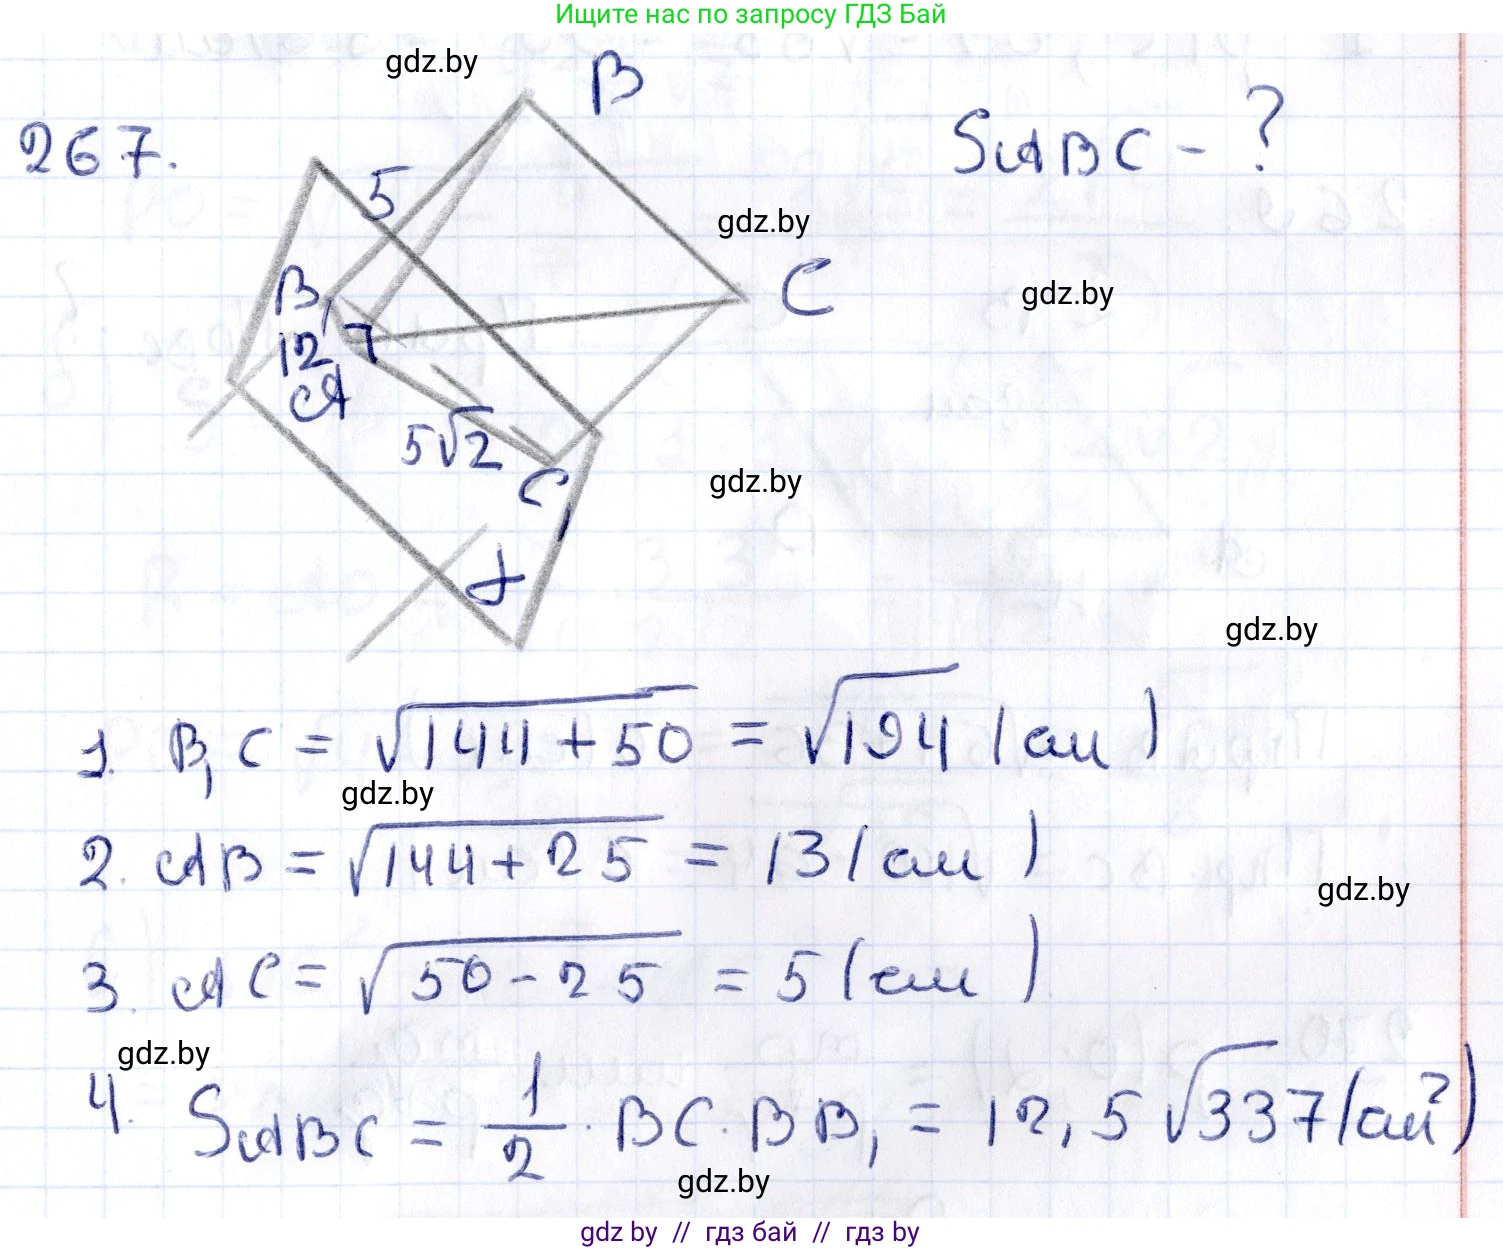 Ищите нас по запросу ГДЗ Бай
gdz.by
B
267.
SABC - ?
5
gdz.by
B₁
C
gdz.by
12
A
5√2
C₁
gdz.by
α
gdz.by
1. B₁C = √144+50 = √194 (см)
gdz.by
2. AB = √144+25 = 13 (см)
gdz.by
3. AC = √50-25 = 5 (см)
gdz.by
4. SABC = 1/2 · BC · BB₁ = 12,5√337 (см²)
gdz.by
gdz by // гдз бай // гдз by